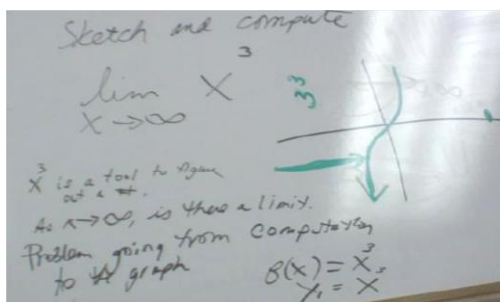 Sketch and compute
lim x³
x→∞
3³
x³ is a tool to figure
out a
As x→∞, is there a limit.
Problem going from computation
to graph
g(x) = x³
y₁ = x³